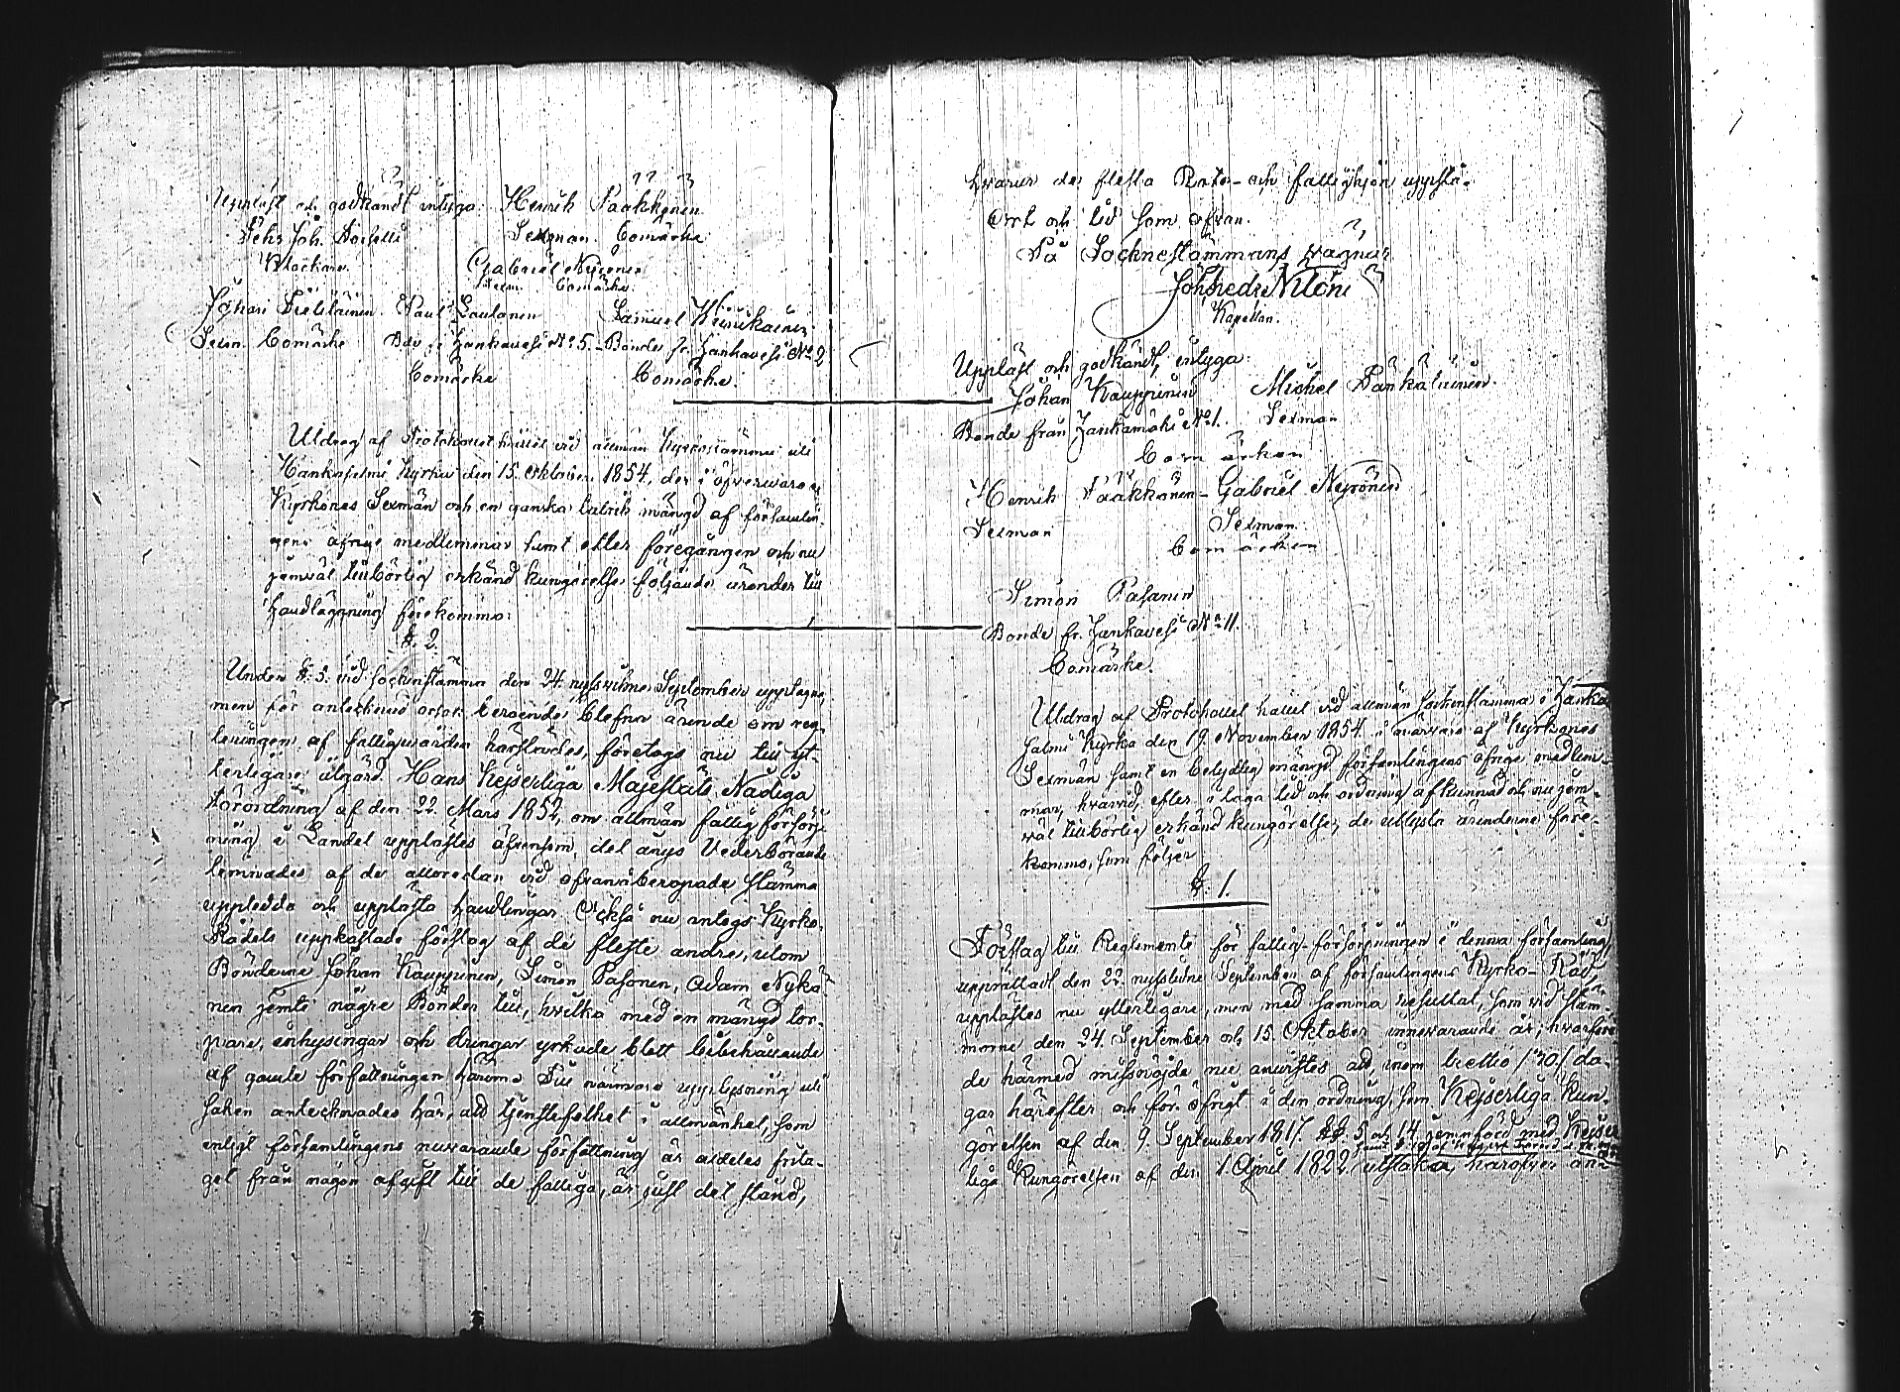 Uppläst och godkändt intyga: Henrik Paakkonen
Pehr Joh.
Sexman. Bomärke
Klockare.
Gabriel Nyrönen
Sexm. Bomärke.
Johan Paul Laulanen Samuel
Sexm. Bomärke Bde fr. Hankavesi No 5. Bonde fr. Hankavesi No 2
Bomärke Bomärke.
Utdrag af Protokollet hållet vid allmän Kyrkostämma uti
Hankasalmi Kyrka den 15 Oktober 1854, der i öfvervaro af
Kyrkones Sexmän och en ganska talrik mängd af församlin-
gens öfrige medlemmar samt efter föregången och nu
jemväl tillbörlig erkänd kungörelse följande ärender till
handläggning förekommo:
§. 2.
Under §. 5. vid Sockenstämman den 24. nyssvikne September upptagne,
men för antecknad orsak beroende blefne ärende om reg-
leringen af fattigvården härstädes, företogs nu till yt-
terligare åtgärd. Hans Kejserliga Majestäts Nådiga
Förordning af den 22. Mars 1852, om allmän fattigförsörj-
ning i Landet upplästes äfvensom, det anys Vederbörande
lemnades af de allaredan vid ofvanåberopade stämma
uppledda och upplästa handlingar. Också nu antogs Kyrko-
Rådets uppkastade förslag af de fleste andre, utom
Bönderne Johan Kauppinen, Simon Pasonen, Adam Nykä-
nen jemte några Bönder till, hvilka med en mängd tor-
pare, inhysingar och drängar yrkade blott bibehållande
af gamle författningen härom. Till närmare upplysning uti
saken antecknades här, att tjenstefolket i allmänhet, som
enligt församlingens nuvarande författning är aldeles frita-
get från någon afgift till de fattiga, är just det stånd,
hvarur de flesta Rote- och fattighjon uppstå.
Ort och tid som ofvan.
På Sockenstämmans vägnar
Kapellan.
Uppläst och godkändt, intyga:
Johan Kauppinen Michel
Bonde från Hankamäki No 1. Sexman
Bomärken
Henrik Paakkonen – Gabriel Nyrönen
Sexman Sexman
Bomärken
Simon Pasanen
Bonde fr. Hankavesi No 11.
Bomärke.
Utdrag af Protokollet hållet vid allmän Sockenstämma i Hanka-
salmi Kyrka den 19. November 1854 i närvaro af Kyrkones
Sexmän samt en betydlig mängd församlingens öfrige medlem-
mar, hvarvid, efter i laga tid och ordning afkunnad och nu jem-
väl tillbörlig erkänd kungörelse, de utlysta ärenderne före-
kommo, som följer
§. 1.
Förslag till Reglemente för fattig-försörjningen i denna församling,
upprättadt den 22. nyssvikne September af församlingens Kyrko-Råd
upplästes nu ytterligare, men med samma resultat, som vid stäm-
morne den 24. September och 15. Oktober innevarande år; hvarföre
de härmed missnöjde nu anvistes att inom trettio /30/ da-
gar härefter och för öfrigt i den ordning, som Kejserliga Kun-
görelsen af den 9. September 1817. §§ 5 och 14 jemnförd med Kejser-
liga Kungörelsen af den 1. April 1822 utstaka, häröfver an-